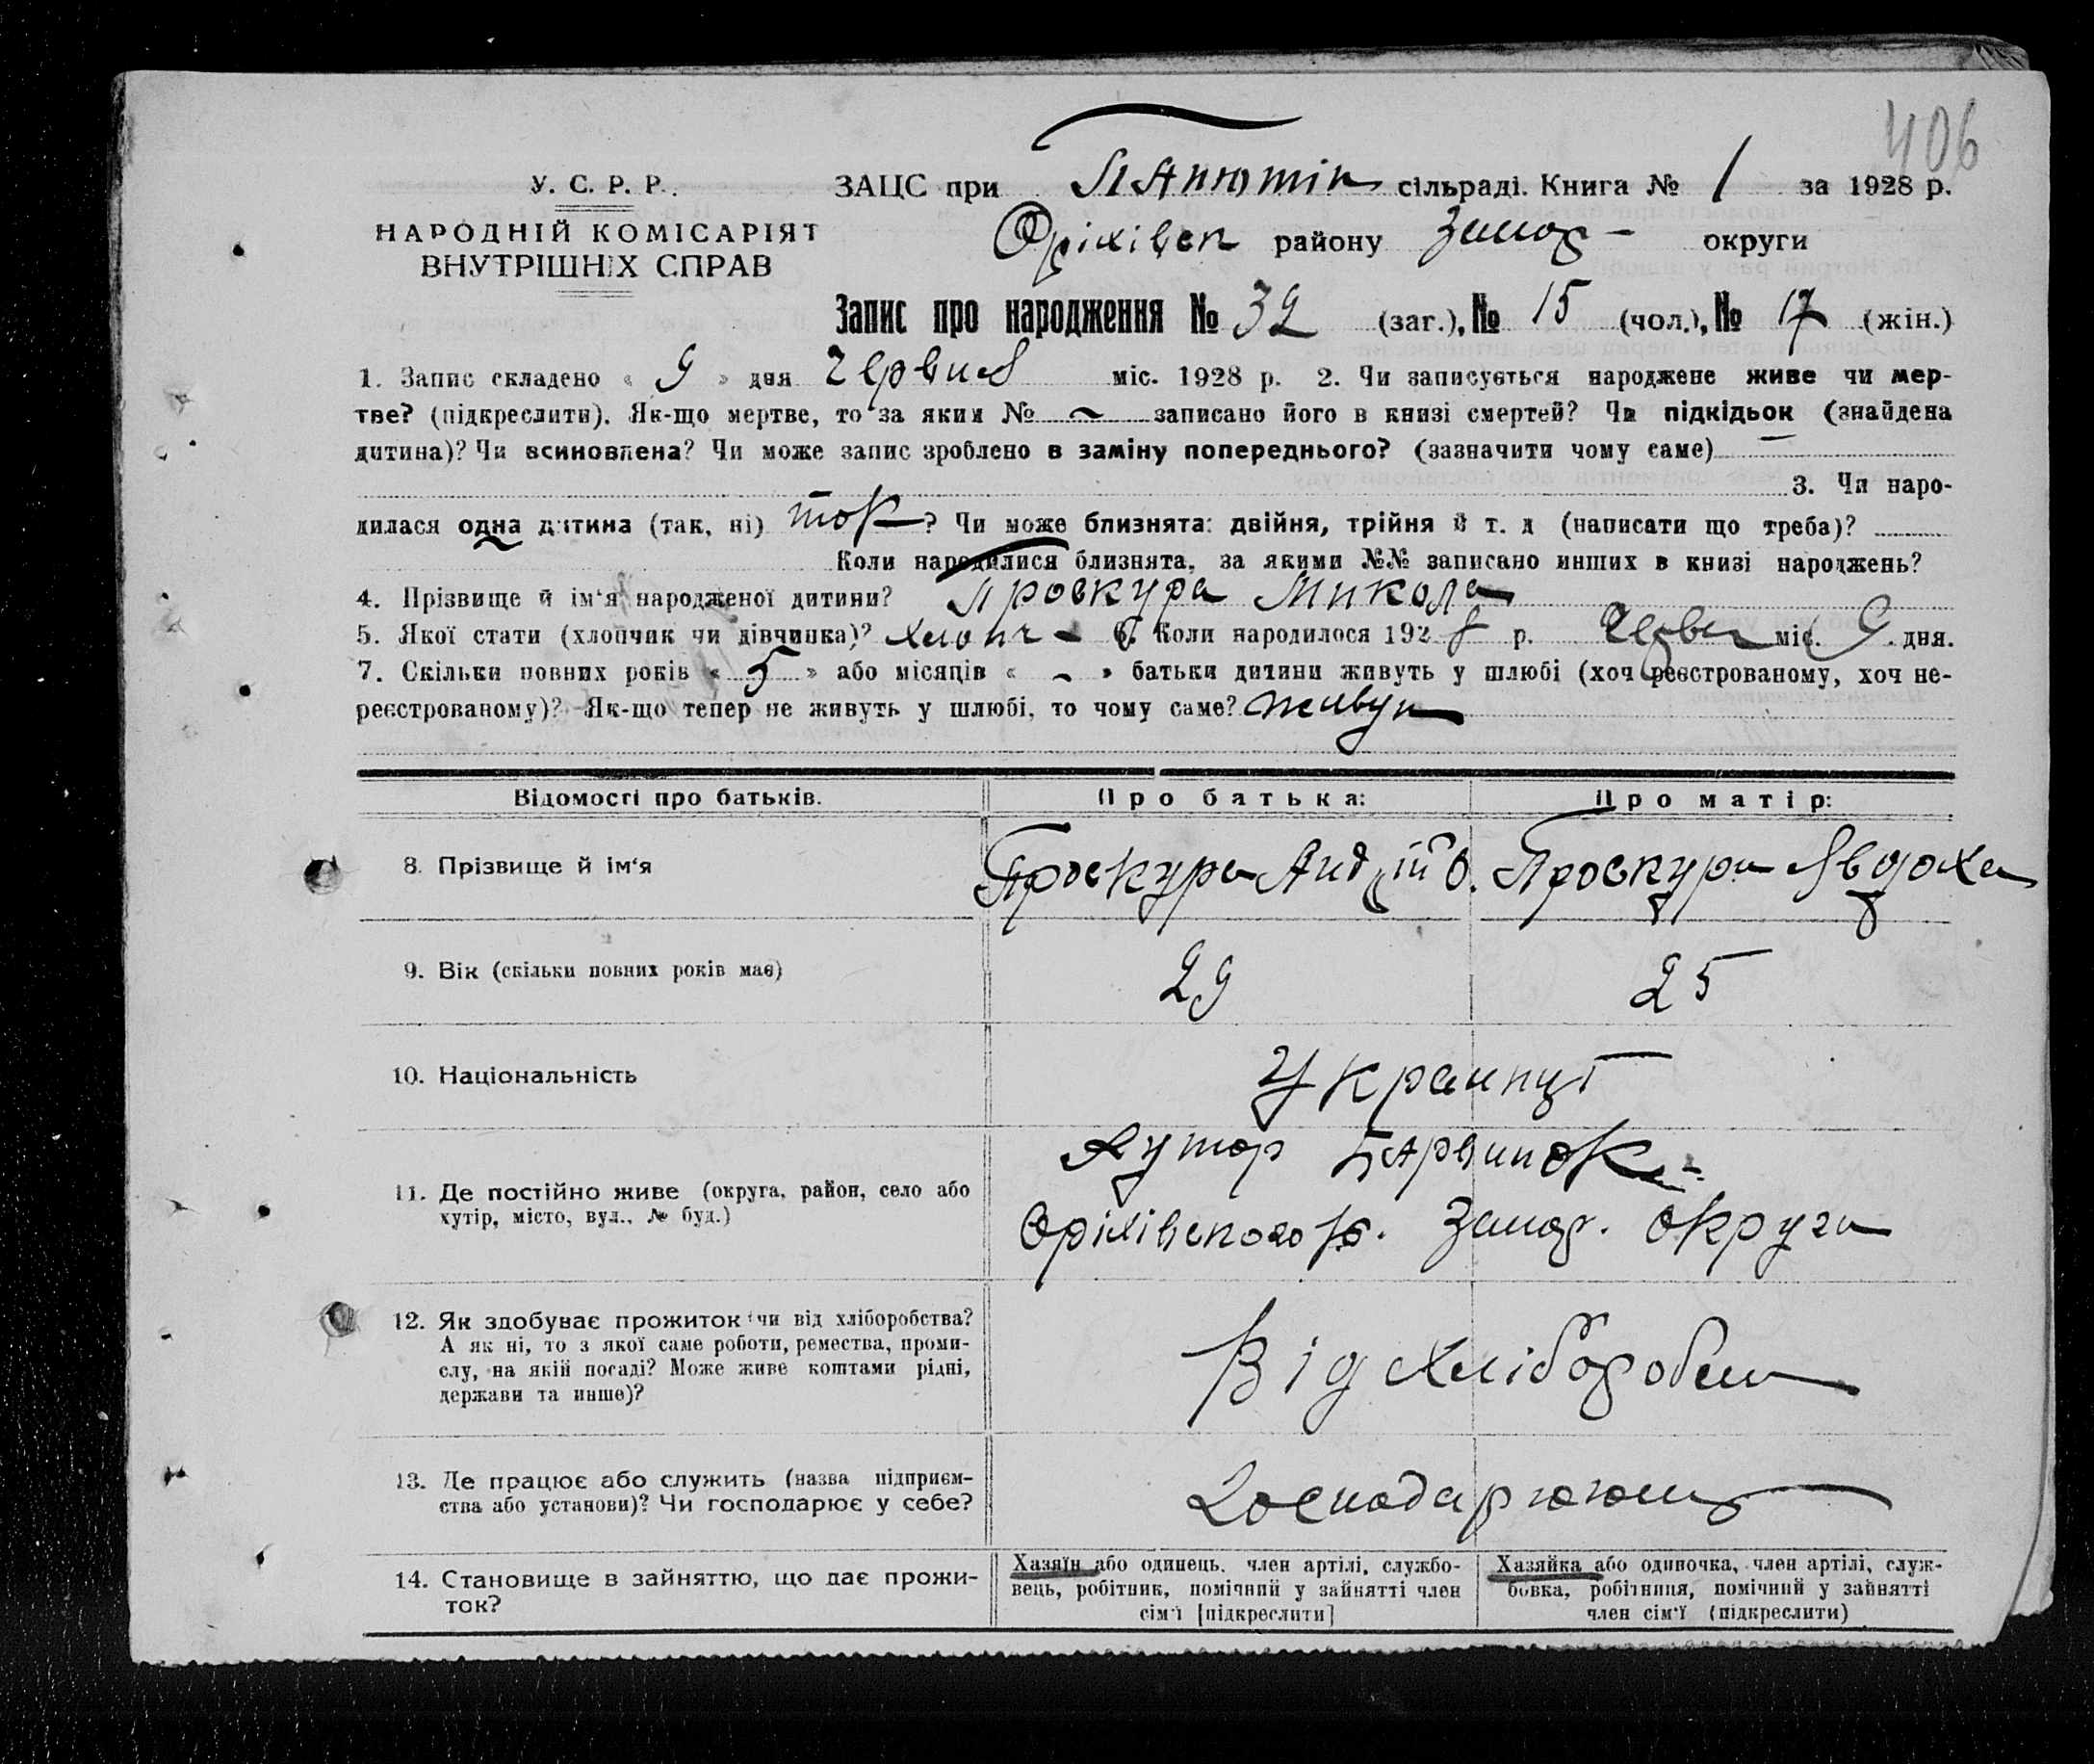 406
У. С. Р. Р.
НАРОДНІЙ КОМІСАРІЯТ
ВНУТРІШНІХ СПРАВ
ЗАЦС при Панютін сільраді. Книга № 1 за 1928 р.
Оріхівск району Запор - округи
Запис про народження № 32 (заг.), № 15 (чол.), № 17 (жін.)
1. Запис складено « 9 » дня Червня міс. 1928 р. 2. Чи записується народжене живе чи мер-
тве? (підкреслити). Як-що мертве, то за яким № ~ записано його в книзі смертей? Чи підкідьок (знайдена
дитина)? Чи всиновлена? Чи може запис зроблено в заміну попереднього? (зазначити чому саме) —
3. Чи наро-
дилася одна дитина (так, ні) так? Чи може близнята: двійня, трійня й т. д (написати що треба)?
Коли народилися близнята, за якими №№ записано инших в книзі народжень?
4. Прізвище й ім'я народженої дитини? Проскура Микола
5. Якої стати (хлопчик чи дівчинка)? Хлопч - 6. Коли народилося 1928 р. Червн міс. 9 дня.
7. Скільки повних років « 5 » або місяців « - » батьки дитини живуть у шлюбі (хоч реєстрованому, хоч не-
реєстрованому)? Як-що тепер не живуть у шлюбі, то чому саме? Живуть
Відомості про батьків. Про батька: Про матір:
8. Прізвище й ім'я Проскура Андрій О. Проскура Явдоха
9. Вік (скільки повних років має) 29 25
10. Національність Украинці
11. Де постійно живе (округа, район, село або
хутір, місто, вул., № буд.)
Хутор Барвинок
Оріхівского р. Запор. Округи
12. Як здобуває прожиток чи від хліборобства?
А як ні, то з якої саме роботи, ремества, проми-
слу, на якій посаді? Може живе коштами рідні,
держави та инше)?
Від хлібороб
13. Де працює або служить (назва підприєм-
ства або установи)? Чи господарює у себе?
Господарюють
14. Становище в зайняттю, що дає прожи-
ток?
Хазяїн або одинець. член артілі, службо-
вець, робітник, помічний у зайнятті член
сім'ї [підкреслити]
Хазяйка або одиночка, член артілі, служ-
бовка, робітниця, помічний у зайнятті
член сім'ї (підкреслити)